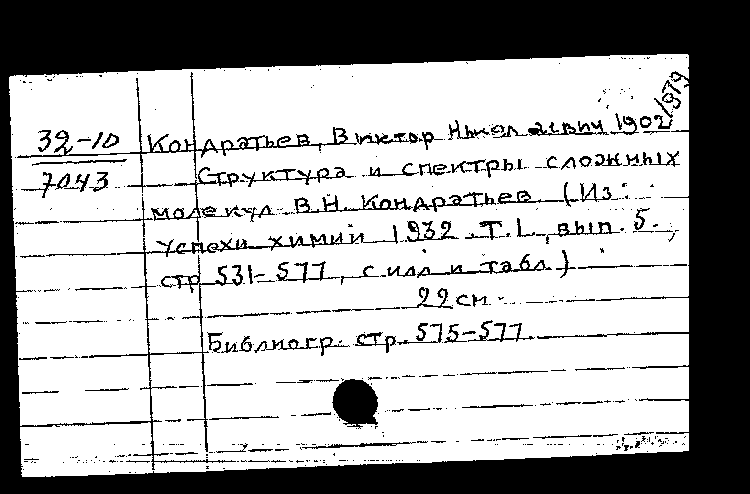 32-10 Кондратьев, Виктор Николаевич 1902/1979
7043 Структура и спектры сложных
молекул. В.Н. Кондратьев. (Из:
Успехи химии 1932. Т.1, вып. 5.,
стр 531-577, с илл и табл.)
22 см.
Библиогр. стр. 575-577.